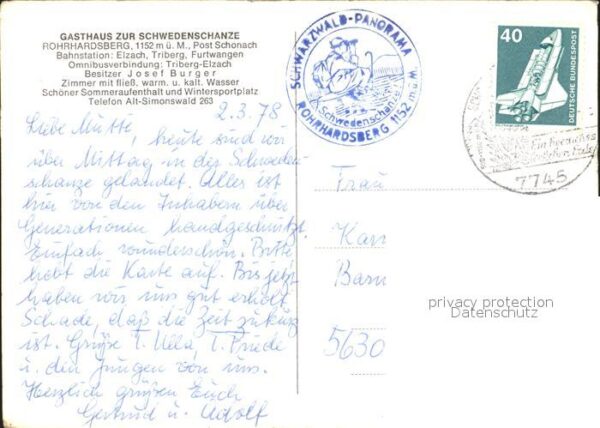 GASTHAUS ZUR SCHWEDENSCHANZE
ROHRHARDSBERG, 1152 m ü. M., Post Schonach
Bahnstation: Elzach, Triberg, Furtwangen
Omnibusverbindung: Triberg-Elzach
Besitzer Josef Burger
Zimmer mit fließ. warm. u. kalt. Wasser
Schöner Sommeraufenthalt und Wintersportplatz
Telefon Alt-Simonswald 263
2.3.78
Liebe Mutte, heute sind wir
über Mittag in der Schweden-
schanze gelandet. Alles ist
hier von den Inhabern über
Generationen handgeschnitzt.
Einfach wunderschön. Bitte
hebt die Karte auf. Bis jetzt
haben wir uns gut erholt.
Schade, daß die Zeit zu kurz
ist. Grüße T. Ulla, T. Friede
u. den Jungen von uns.
Herzlich grüßen Euch
Gertrud u. Adolf
SCHWARZWALD-PANORAMA
Schwedenschanze
ROHRHARDSBERG 1152 m ü M
40
DEUTSCHE BUNDESPOST
7745
Frau
Kar
Barn
5630
privacy protection
Datenschutz